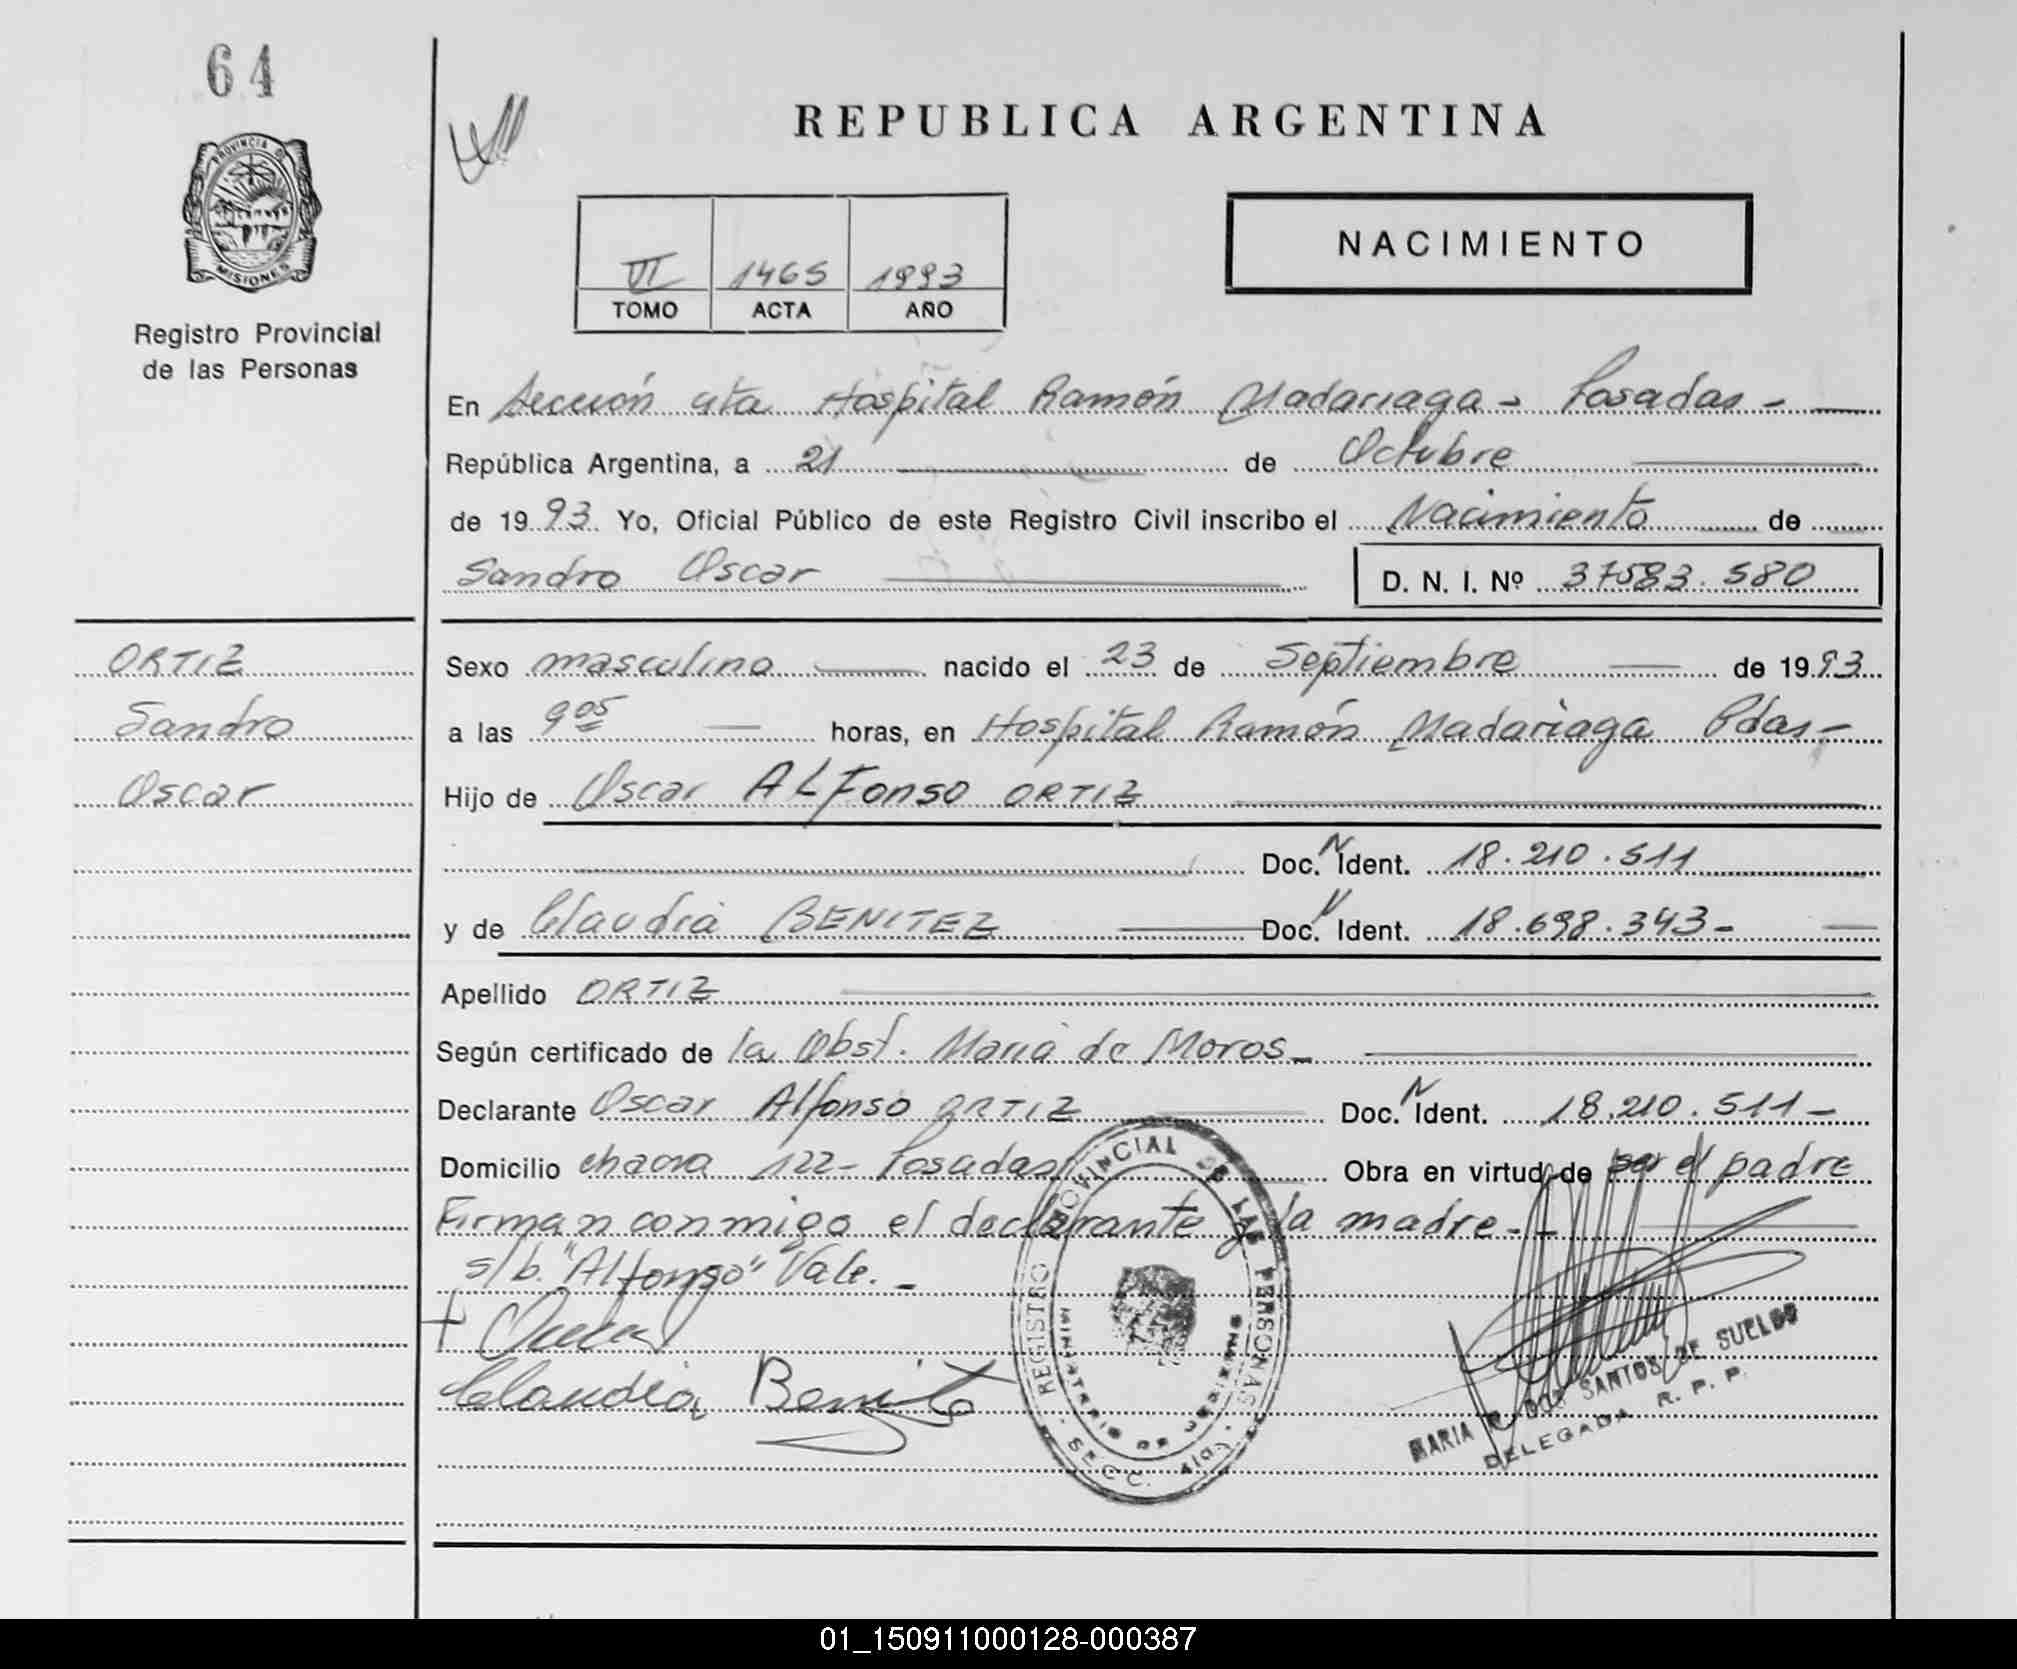 64
PROVINCIA DE
MISIONES
Registro Provincial
de las Personas
REPUBLICA ARGENTINA
NACIMIENTO
VI 1465 1993
TOMO ACTA AÑO
En Sección 4ta Hospital Ramón Madariaga - Posadas -
República Argentina, a 21 de Octubre
de 1993 Yo, Oficial Público de este Registro Civil inscribo el Nacimiento de
Sandro Oscar D. N. I. Nº 37583.580
ORTIZ
Sandro
Oscar
Sexo masculino nacido el 23 de Septiembre de 1993
a las 9 05 horas, en Hospital Ramón Madariaga Pdas -
Hijo de Oscar ALFonso ORTIZ
Doc. N Ident. 18.210.511
y de Claudia BENITEZ Doc. N Ident. 18.698.343 -
Apellido ORTIZ
Según certificado de la Obst. Maria de Moros -
Declarante Oscar Alfonso ORTIZ Doc. N Ident. 18.210.511 -
Domicilio chacra 122 - Posadas Obra en virtud de ser el padre
Firman conmigo el declarante y la madre. -
s/b. "Alfonso" Vale. -
Claudia Benitez
REGISTRO PROVINCIAL DE LAS PERSONAS
SECC.
MARIA R. DOS SANTOS DE SUELDO
DELEGADA R. P. P.
01_150911000128-000387